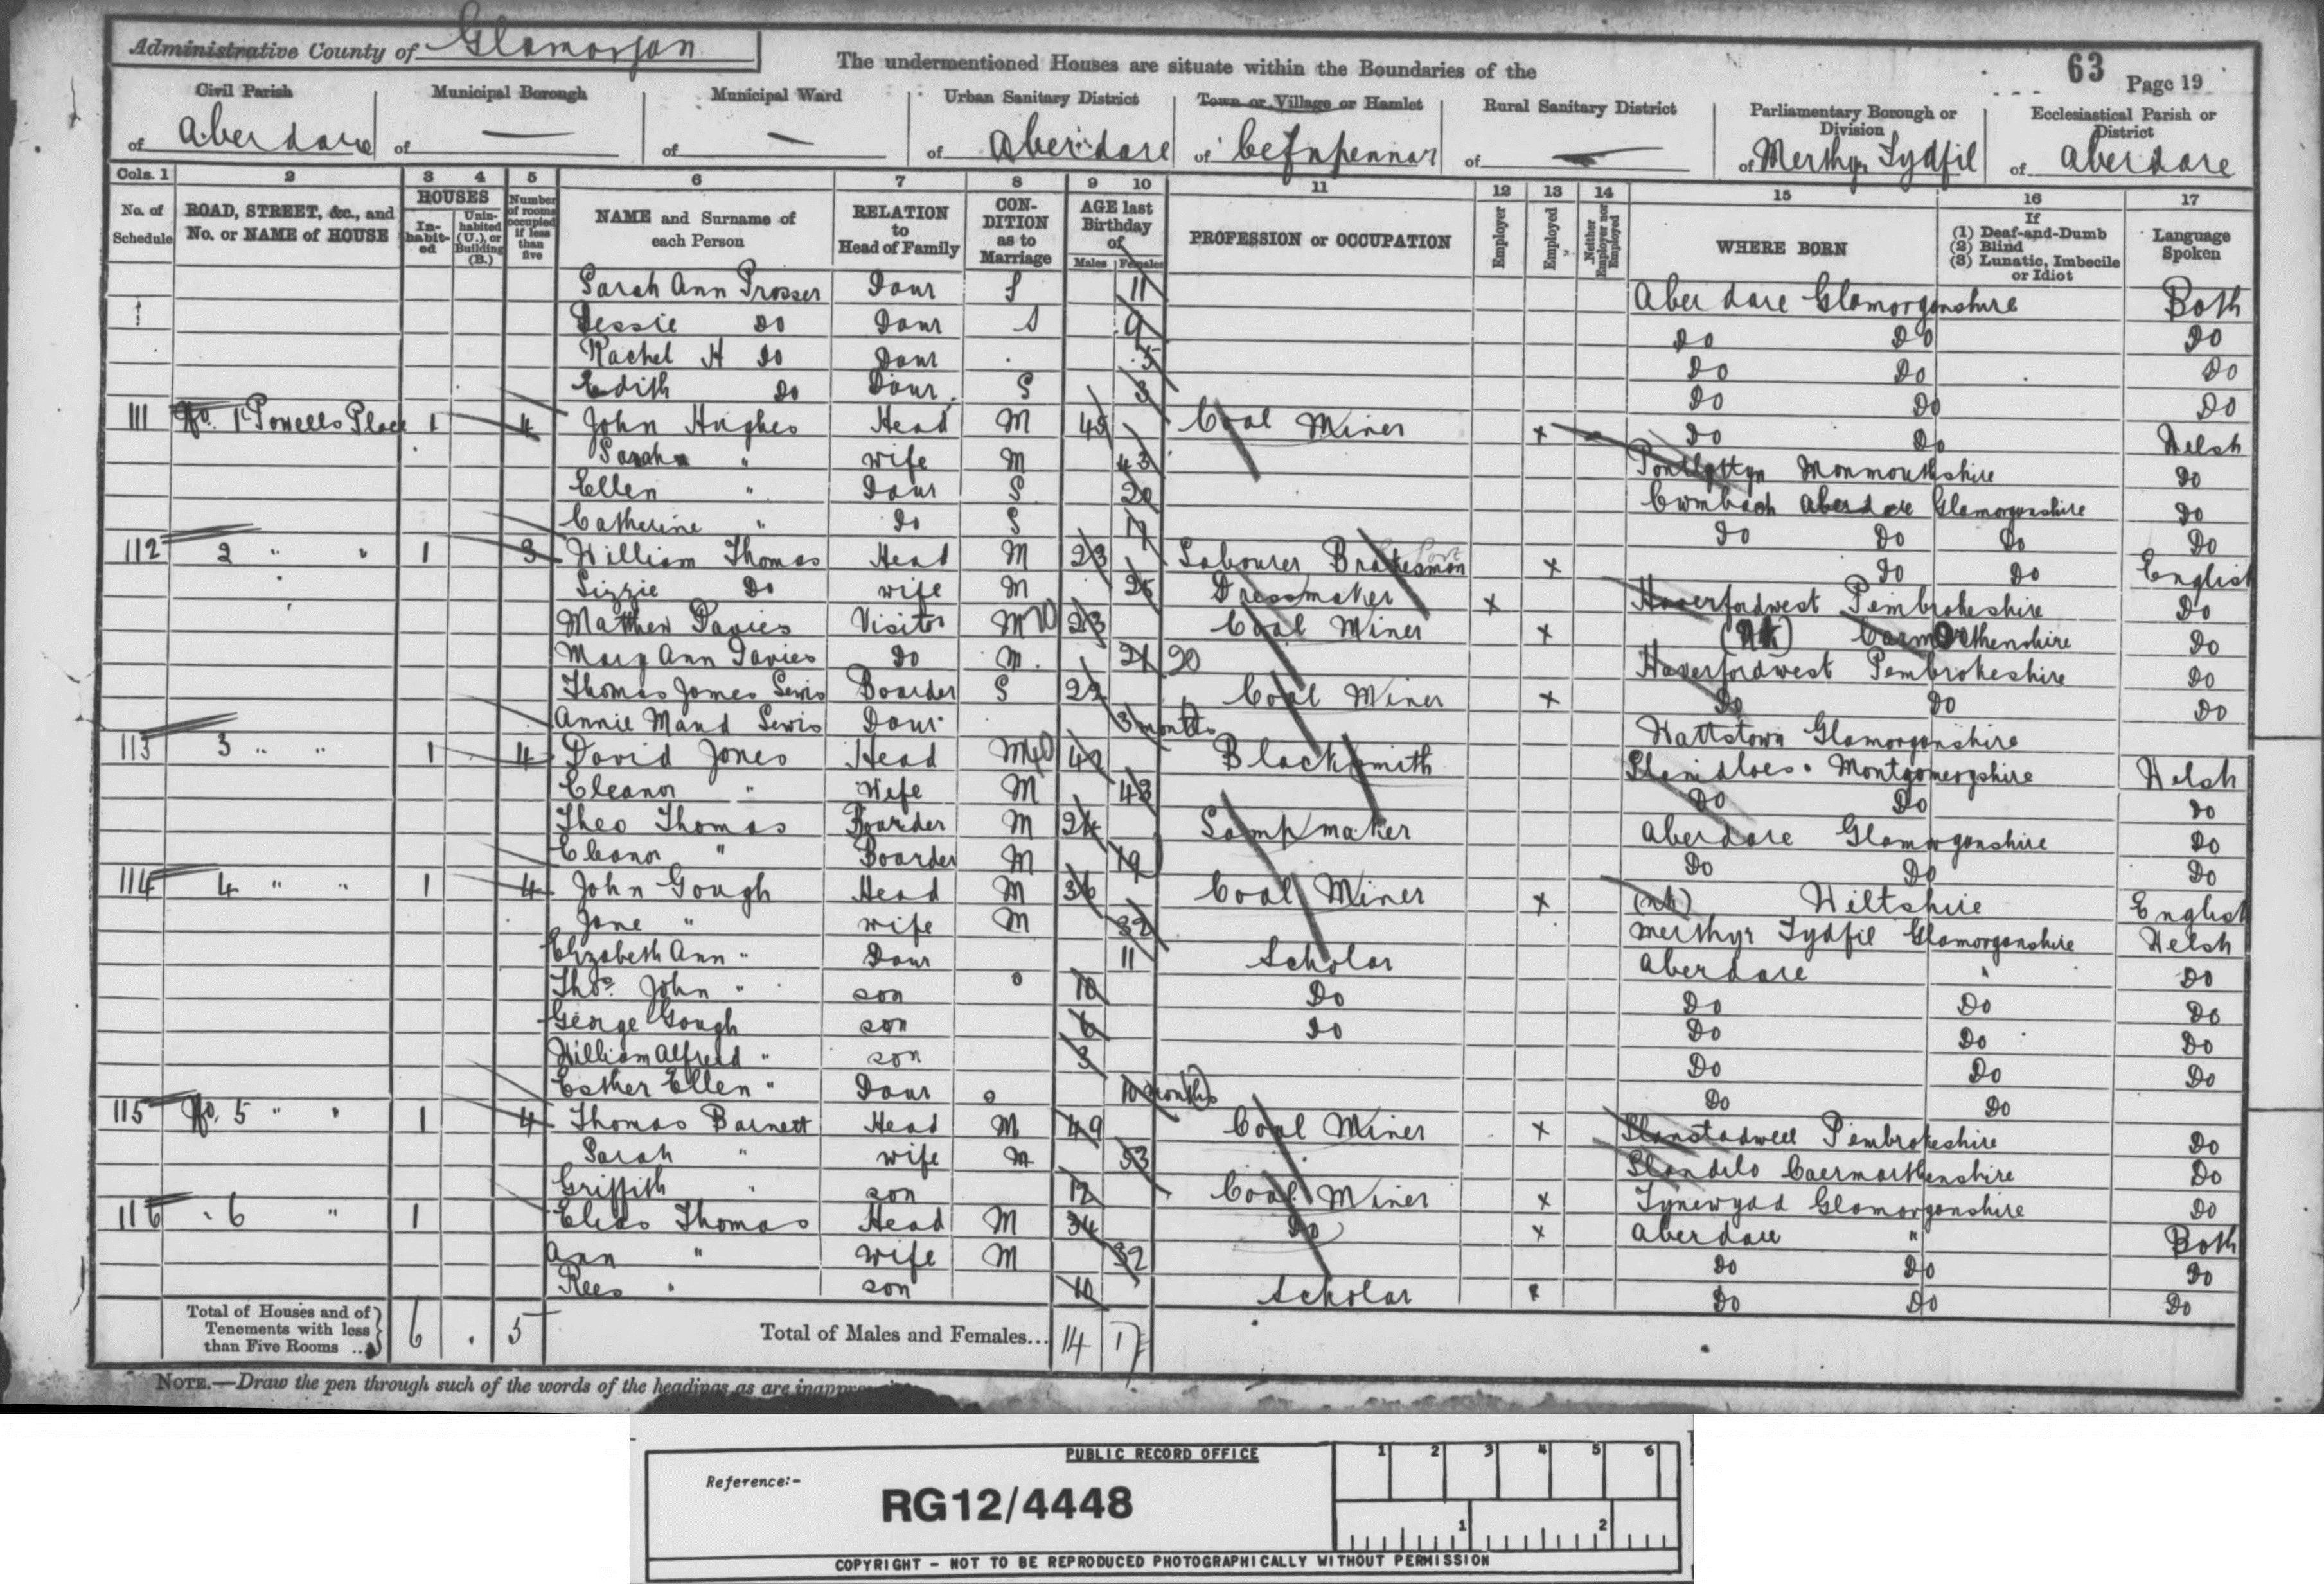 Administrative County of Glamorgan
The undermentioned Houses are situate within the Boundaries of the
63 Page 19
Civil Parish of Aberdare
Municipal Borough of —
Municipal Ward of —
Urban Sanitary District of Aberdare
Town or Village or Hamlet of Cefnpennar
Rural Sanitary District of —
Parliamentary Borough or Division of Merthyr Tydfil
Ecclesiastical Parish or District of Aberdare
Cols. 1 2 3 4 5 6 7 8 9 10 11 12 13 14 15 16 17
No. of Schedule
ROAD, STREET, &c., and No. or NAME of HOUSE
HOUSES
Inhabited
Uninhabited (U.), or Building (B.)
Number of rooms occupied if less than five
NAME and Surname of each Person
RELATION to Head of Family
CONDITION as to Marriage
AGE last Birthday of
Males Females
PROFESSION or OCCUPATION
Employer
Employed
Neither Employer nor Employed
WHERE BORN
If (1) Deaf-and-Dumb (2) Blind (3) Lunatic, Imbecile or Idiot
Language Spoken
Sarah Ann Prosser Daur S 11 Aberdare Glamorganshire Both
Bessie Do Daur S 9 Do Do Do
Rachel H Do Daur 5 Do Do Do
Edith Do Daur S 3 Do Do Do
111 No. 1 Powells Place 1 4 John Hughes Head M 45 Coal Miner x Do Do Welsh
Sarah " wife M 43 Pontlottyn Monmouthshire Do
Ellen " Daur S 20 Cwmbach Aberdare Glamorganshire Do
Catherine " Do S 17 Do Do Do Do
112 2 " " 1 3 William Thomas Head M 23 Labourer Brakesman x Do Do English
Lizzie Do wife M 25 Dressmaker x Haverfordwest Pembrokeshire Do
Matthew Davies Visitor M 23 Coal Miner x (NK) Carmarthenshire Do
Mary Ann Davies Do M 21 20 Haverfordwest Pembrokeshire Do
Thomas James Lewis Boarder S 22 Coal Miner x Do Do Do
Annie Maud Lewis Daur 3 months Wattstown Glamorganshire
113 3 " " 1 4 David Jones Head M 42 Blacksmith Llanidloes Montgomeryshire Welsh
Eleanor " Wife M 43 Do Do Do
Theo Thomas Boarder M 24 Lampmaker Aberdare Glamorganshire Do
Eleanor " Boarder M 19 Do Do Do
114 4 " " 1 4 John Gough Head M 36 Coal Miner x (nk) Wiltshire English
Jane " wife M 32 Merthyr Tydfil Glamorganshire Welsh
Elizabeth Ann " Daur 11 Scholar Aberdare " Do
Thos. John " son 10 Do Do Do Do
George Gough son 6 Do Do Do Do
William Alfred " son 3 Do Do Do
Esther Ellen " Daur 10 months Do Do
115 No. 5 " " 1 4 Thomas Barnett Head M 49 Coal Miner x Llanstadwell Pembrokeshire Do
Sarah " wife M 53 Llandilo Caermarthenshire Do
Griffith " son 12 Coal Miner x Tynewydd Glamorganshire Do
116 6 " 1 Elias Thomas Head M 34 Do x Aberdare " Both
Ann " wife M 32 Do Do Do
Rees " son 10 Scholar x Do Do Do
Total of Houses and of Tenements with less than Five Rooms 6 5 Total of Males and Females... 14 17
NOTE.—Draw the pen through such of the words of the headings as are
PUBLIC RECORD OFFICE
1 2 3 4 5 6
Reference:-
RG12/4448
1 2
COPYRIGHT - NOT TO BE REPRODUCED PHOTOGRAPHICALLY WITHOUT PERMISSION